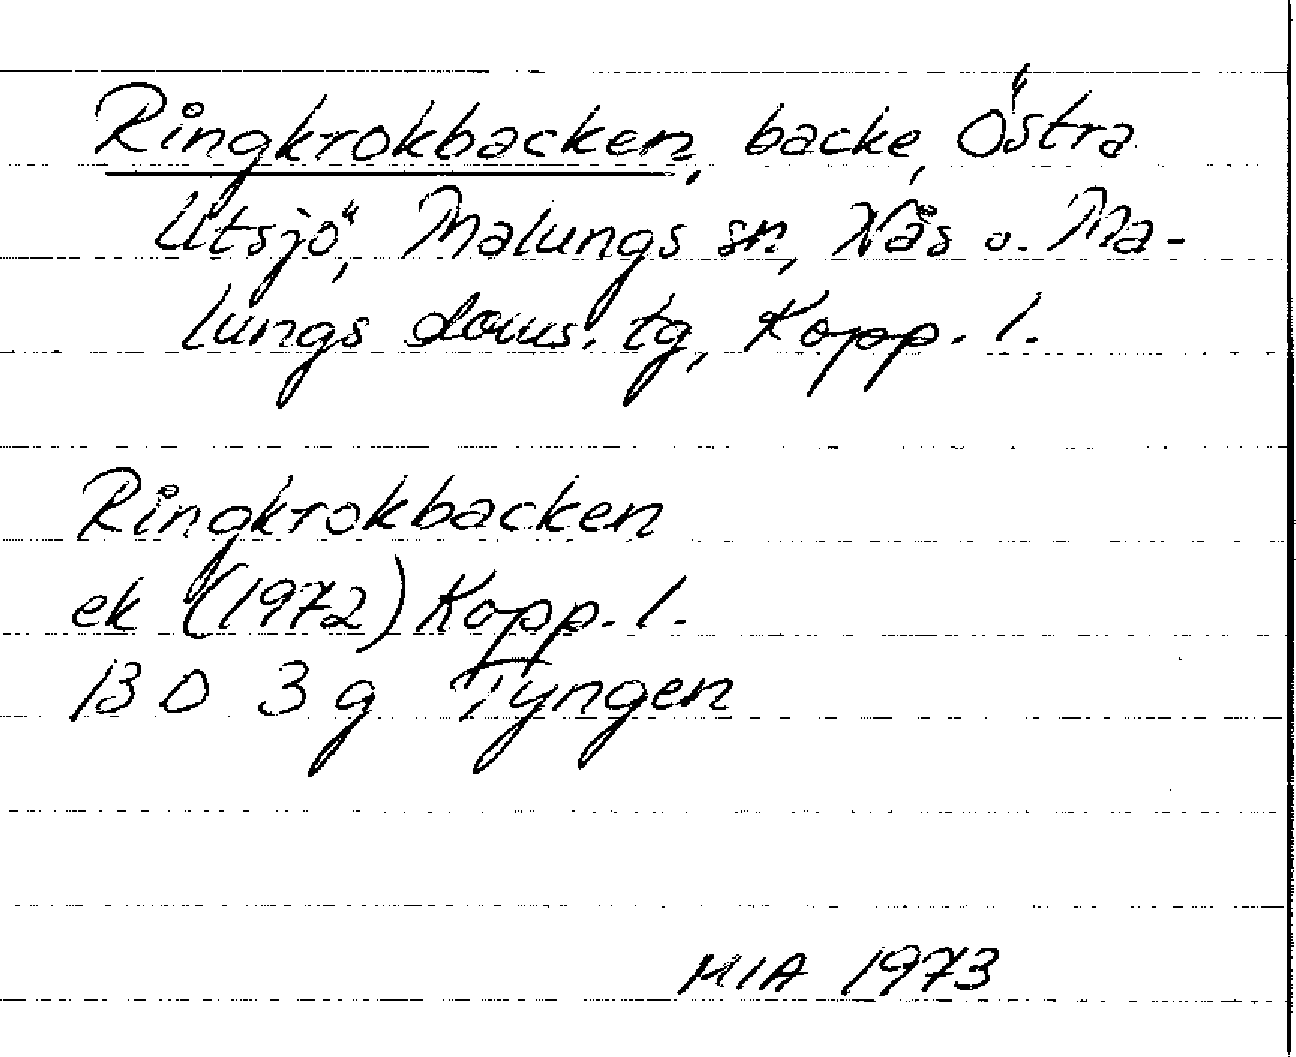 Ringkrokbacken, backe, Östra
Utsjö, Malungs sn, Nås o. Ma-
lungs doms. tg, Kopp. l.
Ringkrokbacken
ek (1972) Kopp. l.
13 D 3 g Tyngen
MIA 1973